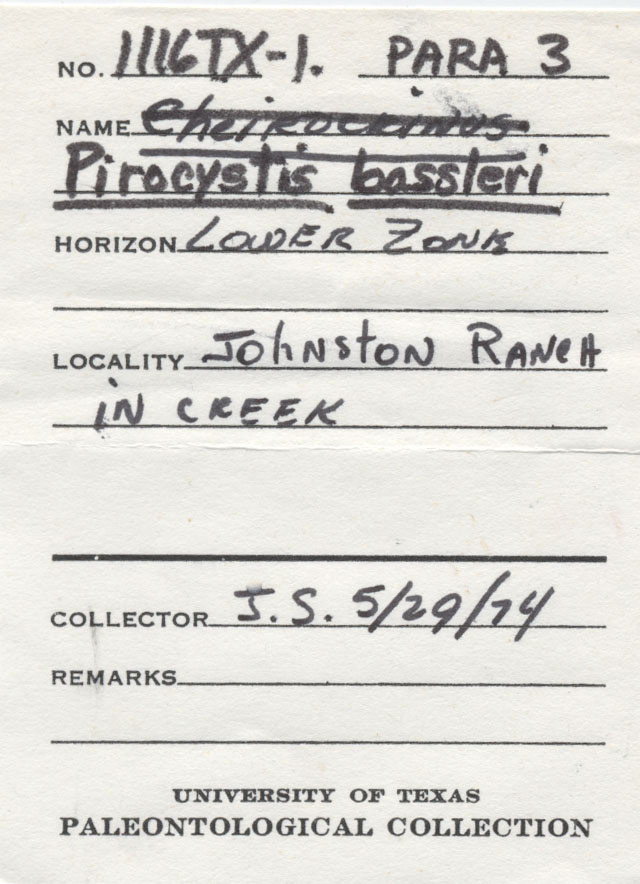 NO. 1116TX-1. PARA 3
NAME Cheirocrinus
Pirocystis bassleri
HORIZON LOWER ZONE
LOCALITY JOHNSTON RANCH
IN CREEK
COLLECTOR J.S. 5/29/74
REMARKS
UNIVERSITY OF TEXAS
PALEONTOLOGICAL COLLECTION